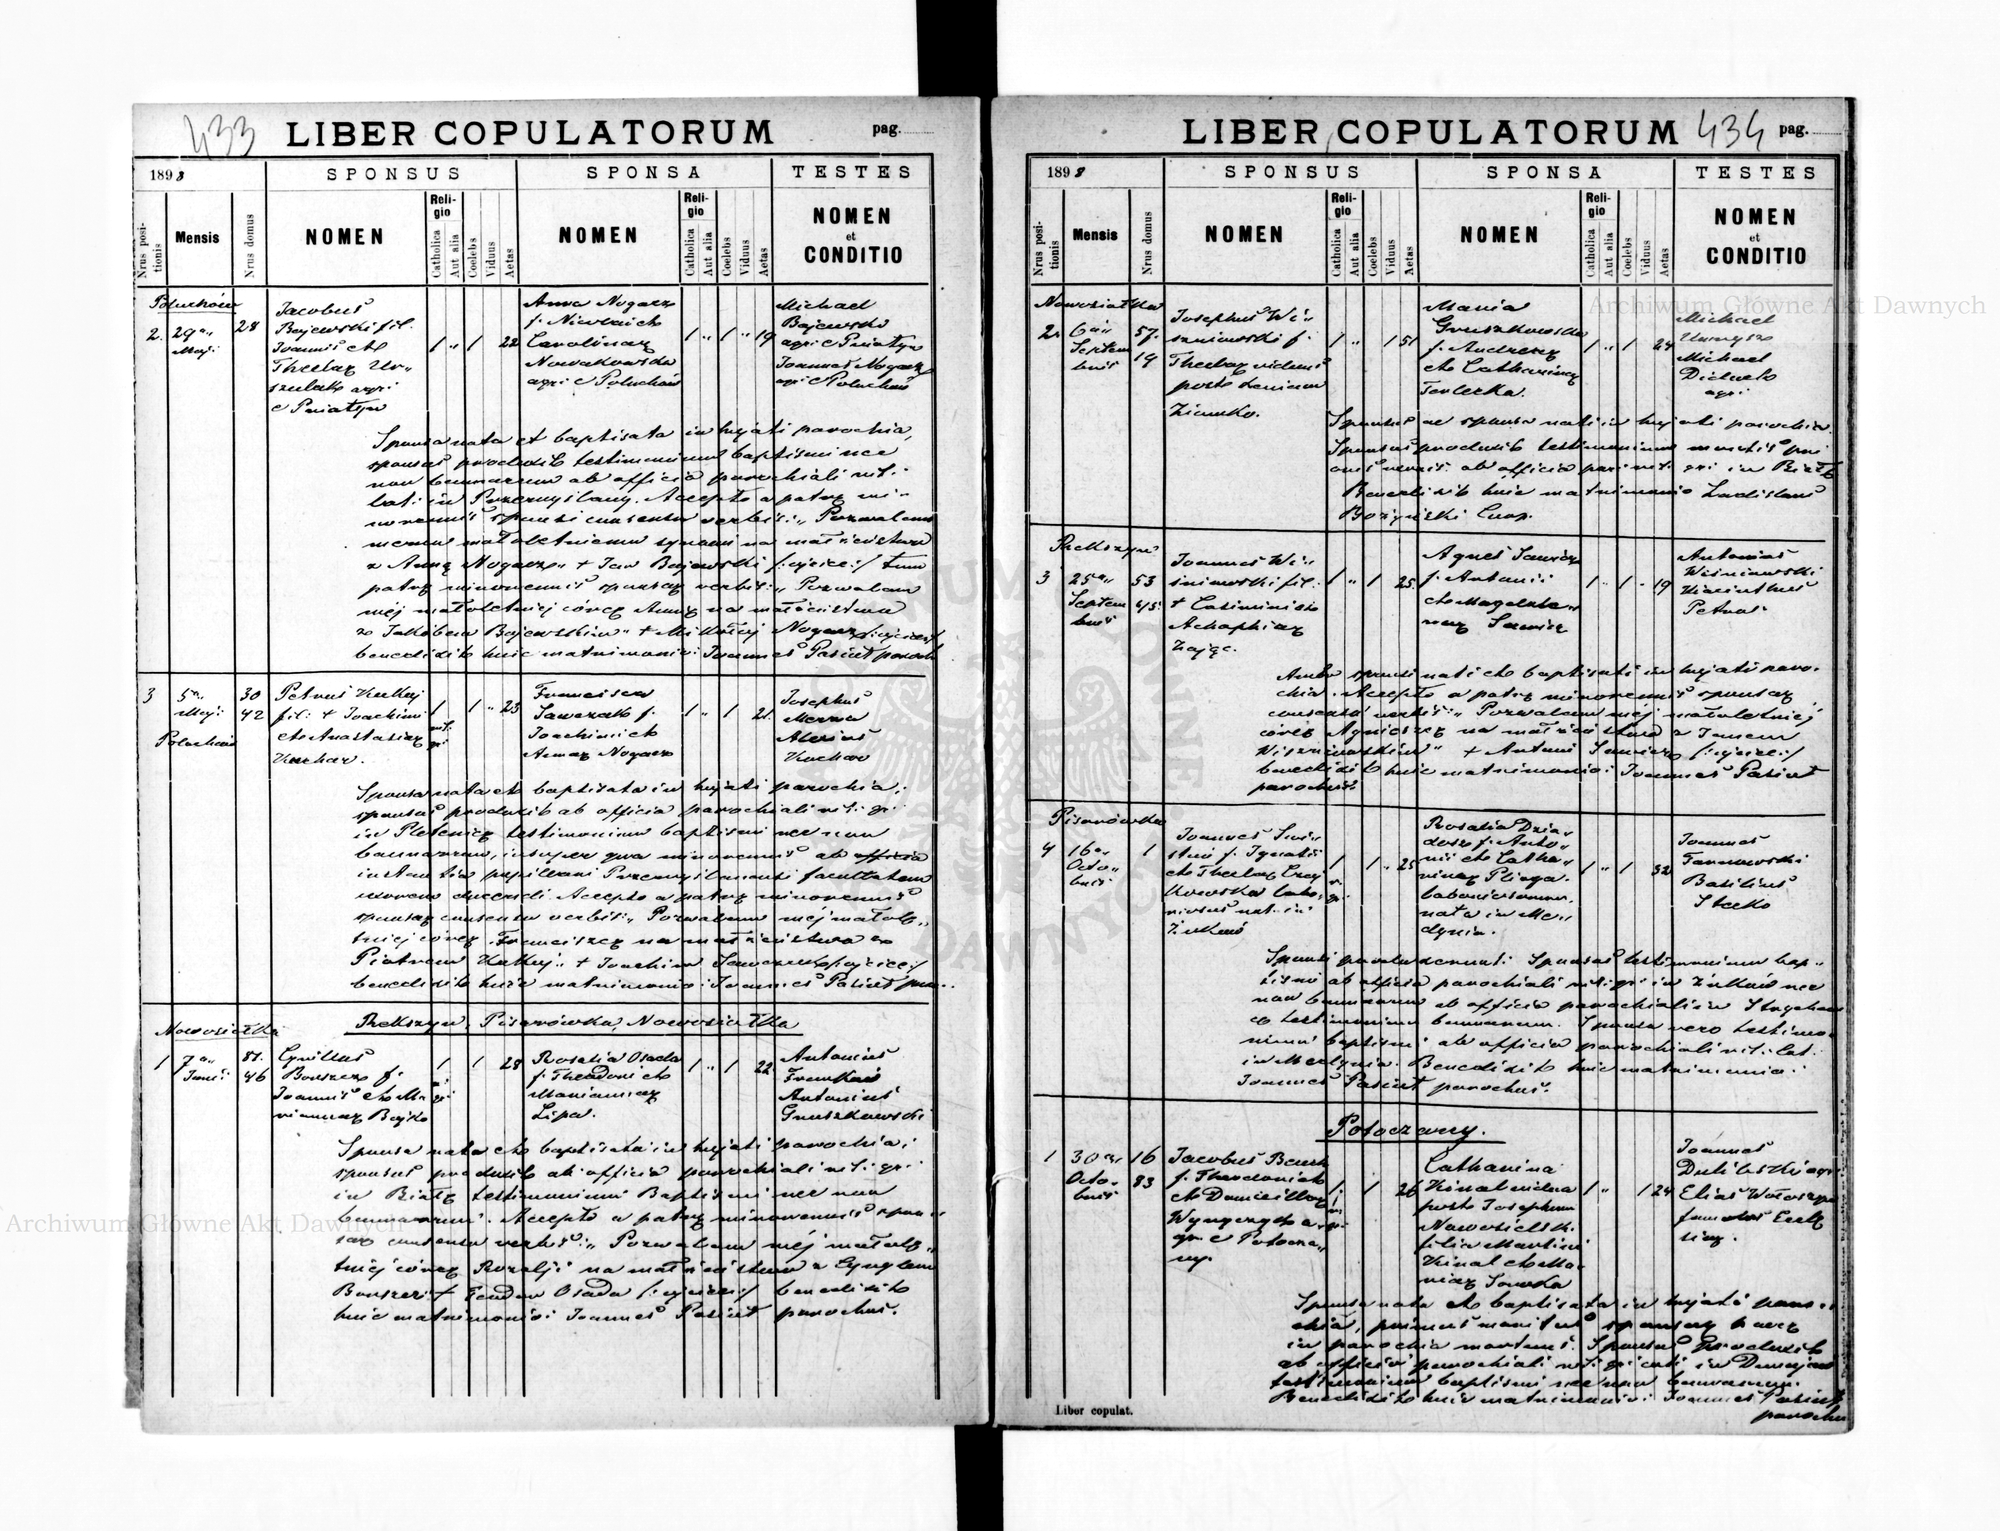 433 LIBER COPULATORUM pag.
1898 SPONSUS SPONSA TESTES
Nrus positionis Mensis Nrus domus NOMEN Religio Catholica Aut alia Coelebs Viduus Aetas NOMEN Religio Catholica Aut alia Coelebs Viduus Aetas NOMEN et CONDITIO
Poluchów
2. 29 Maji 28
Jacobus
Bajewski fil.
Joannis et
Theclae Ur-
szulak agri
c Pniatyn
1 " 1 22
Anna Nogacz
f. Nicolai et
Carolinae
Nowakowska
agri c Poluchów
1 " 1 19
Michael
Bajewski
agri c Pniatyn
Joannes Nogacz
agri c Poluchów
Sponsa nata et baptisata in hujati parochia,
sponsus produxit testimonium baptismi nec
non bannorum ab officio parochiali rit.
lat. in Przemyślany. Accepto a patre mi-
norennis sponsi consensu verbis: „Pozwalam
memu małoletniemu synowi na małżeństwo
z Anną Nogacz" + Jan Bajewski /:ojciec:/ tum
patris minorennis sponsae verbis: „Pozwalam
mej małoletniej córce Annie na małżeństwo
z Jakóbem Bajewskim" + Mikołaj Nogacz /:ojciec:/
benedixit huic matrimonio: Joannes Pasiut paroch
3 5 Maji 30 42
Poluchów
Petrus Kulkej
fil: + Joachimi
et Anastasiae
Kuchar.
1 rit. gr. 1 " 23
Francisca
Sawczak f.
Joachimi et
Annae Nogacz
1 " 1 21
Josephus
Alexius
Kuchar
Sponsa nata et baptisata in hujati parochia;
sponsus produxit ab officio parochiali rit. gr.
in Pletenice testimonium baptismi nec non
bannorum, insuper qua minorennis ab officio
instantia pupillari Przemyślanensi facultatem
uxorem ducendi. Accepto a patre minorennis
sponsae consensu verbis: „Pozwalam mej małole-
tniej córce Franciszce na małżeństwo z
Piotrem Kulkej" + Joachim Sawczak /:ojciec:/
benedixit huic matrimonio: Joannes Pasiut par.
Nowosiółka Brekszyn, Pisarówka Nowosiółka
1 7 Juni 81. 46
Cyrillus
Borszcz f.
Joannis et Ma-
riannae Bojko
1 rit gr. 1 28
Rosalia Osada
f. Theodori et
Mariannae
Lipa.
1 " 1 22
Antonius
Antonius
Gruszkowski
Sponsa nata et baptisata in hujati parochia;
sponsus produxit ab officio parochiali rit. gr.
in Białe testimonium Baptismi nec non
bannorum. Accepto a patre minorennis spon-
sae consensu verbis: „Pozwalam mej małole-
tniej córce Rozalji na małżeństwo z Cyrylem
Borszcz + Teodor Osada /:ojciec:/ benedixit
huic matrimonio: Joannes Pasiut parochus.
LIBER COPULATORUM 434 pag.
1898 SPONSUS SPONSA TESTES
Nrus positionis Mensis Nrus domus NOMEN Religio Catholica Aut alia Coelebs Viduus Aetas NOMEN Religio Catholica Aut alia Coelebs Viduus Aetas NOMEN et CONDITIO
Nowosiółka
2. 6 Septembris 57. 19
Josephus Wi-
szniowski f.
Theclae viduus
post
Ziemko.
1 " 1 51
Maria
Gruszkowska
f. Andreae
et Catharinae
Terlecka.
1 " 1 24
Michael
Michael
agri
Sponsus ac sponsa nati in hujati parochia.
Sponsus produxit testimonium mortis pri
oris uxoris ab officio par. rit. gr. in Białe
Benedixit huic matrimonio Ladislaus
Coop.
Brekszyn
3 25 Septembris 53 45.
Joannes Wi-
śniowski fil.
+ Casimiri et
Agaphiae
Zając.
1 " 1 25.
Agnes Sawicz
f. Antonii
et Magdale-
nae Sawicz
1 " 1 - 19
Antonius
Wiśniowski
Hiacinthus
Petras
Ambo sponsi nati et baptisati in hujati paro-
chia. Accepto a patre minorennis sponsae
consensu verbis: „Pozwalam mej małoletniej
córce Agnieszce na małżeństwo z Janem
Wiszniowskim" + Antoni Sawicz /:ojciec:/
benedixit huic matrimonio: Joannes Pasiut
parochus.
Pisarówka
4 16 Octobris 1
Joannes
f. Ignatii
et Theclae
kowska labo-
riosus nat. in
Żuków
1 r. gr. 1 " 25
Rosalia Dzia-
dosz f. Anto-
nii et Catha-
rinae Pliega.
nata in Me-
dynia.
1 " 1 32
Joannes
Tarnawski
Basilius
Stecko
Sponsi produxerunt: Sponsus testimonium bap-
tismi ab officio parochiali rit. gr. in Żuków nec
non bannorum ab officio parochiali in
testimonium bannorum. Sponsa vero testimo-
nium baptismi ab officio parochiali rit. lat.
in Medynia. Benedixit huic matrimonio:
Joannes Pasiut parochus.
Potoczany.
1 30 Octobris 16 83
Jacobus
f. Theodori et
et Domicellae
gr. c Potocza-
ny.
1 rit. gr. 1 26
Catharina
Kinal vidua
post Josephum
Nowosielski
filia Martini
Kinal et Ma-
riae Sowska
1 " 1 24
Joannes
agr.
Elias
Sponsa nata et baptisata in hujati paro-
chia, primus maritus sponsae hacce
in parochia mortuus. Sponsus produxit
ab officio parochiali rit. gr. cati in Dunajów
testimonium baptismi nec non bannorum.
Benedixit huic matrimonio: Joannes Pasiut
parochus
Liber copulat.
Archiwum Główne Akt Dawnych
Archiwum Główne Akt Dawnych
ARCHIWUM GŁÓWNE AKT DAWNYCH